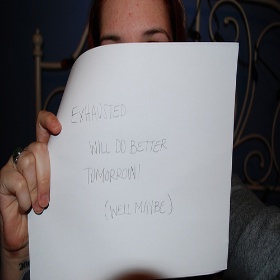 EXHAUSTED
WILL DO BETTER
TOMORROW!
(WELL MAYBE)